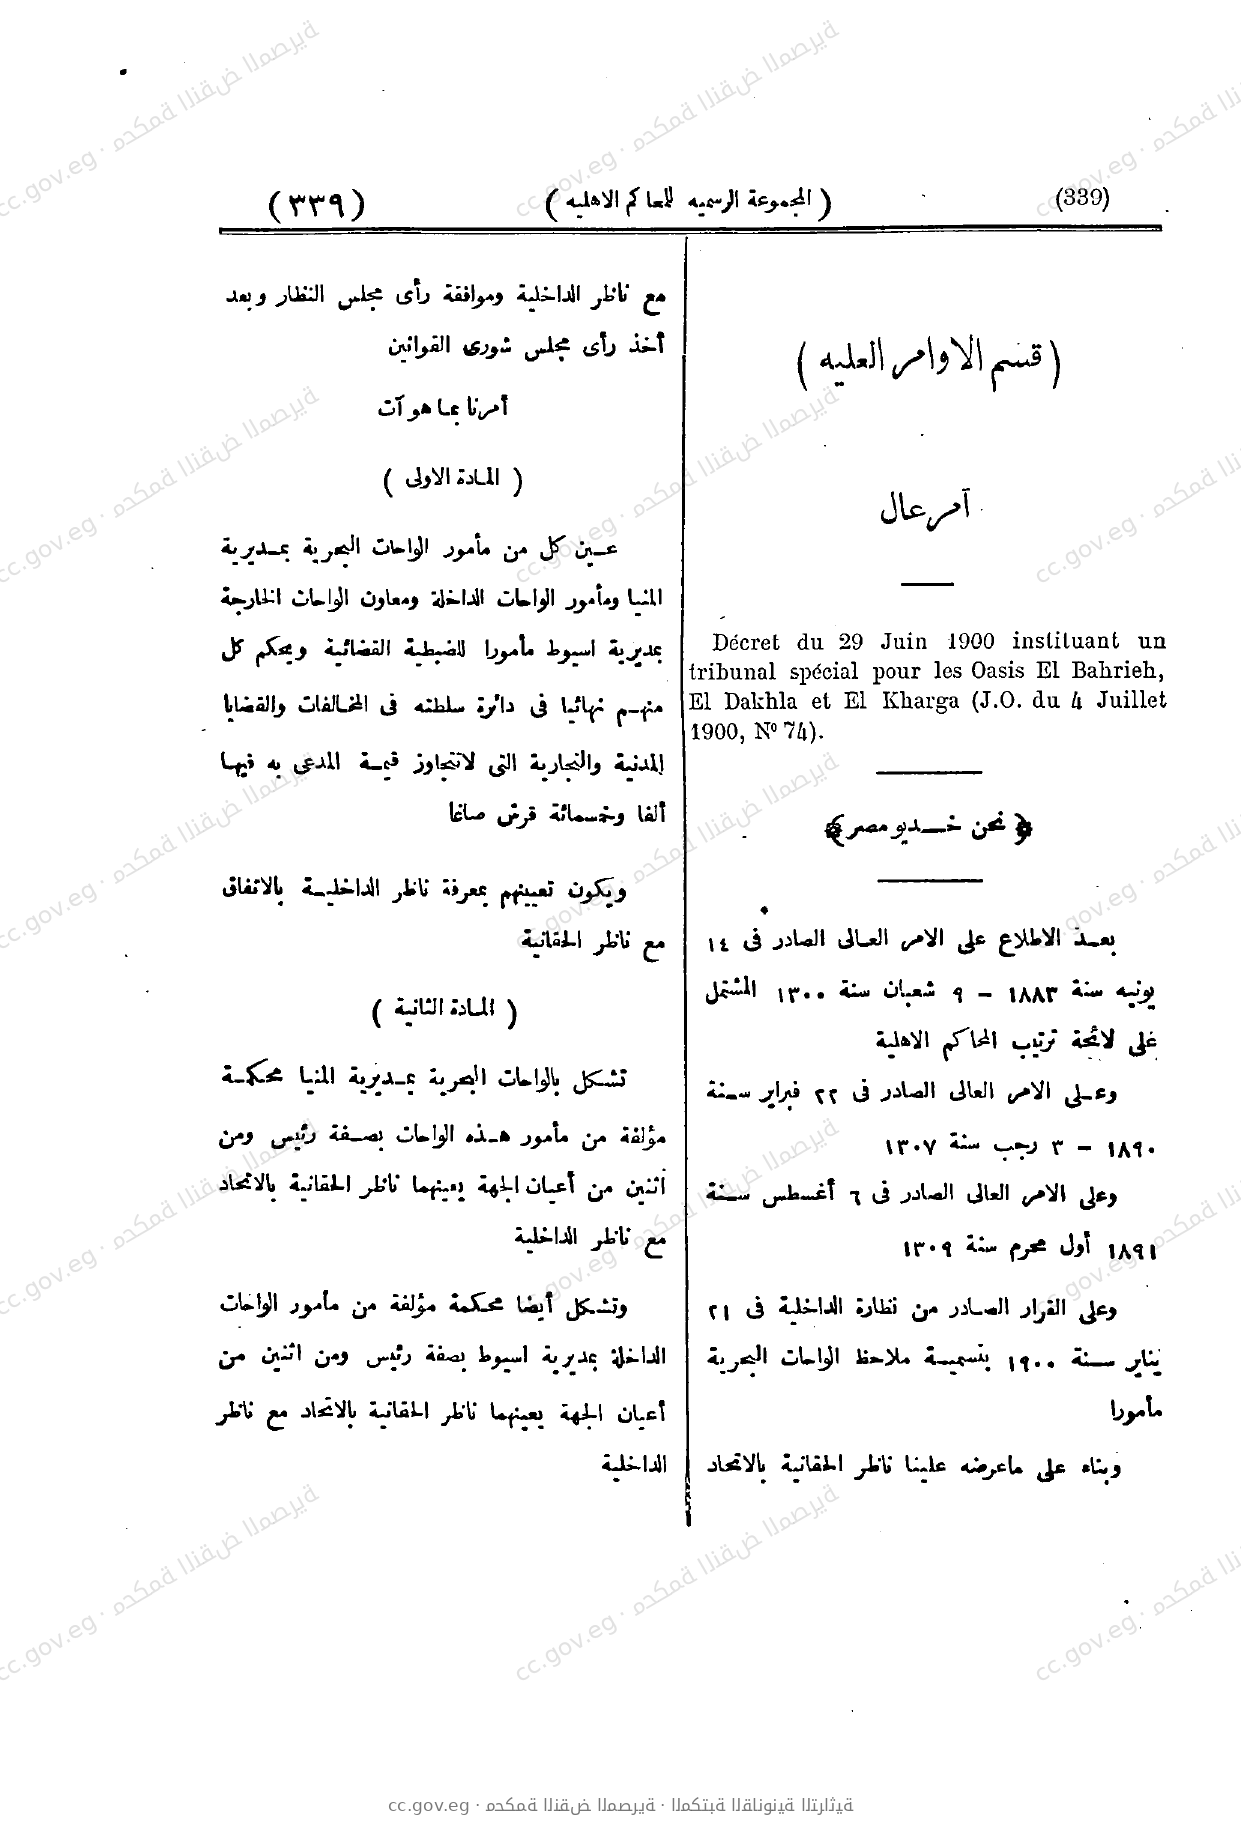 (339)
( المجموعة الرسميه للمحاكم الاهليه )
(٣٣٩)
( قسم الاوامر العليه )
آمر عال
Décret du 29 Juin 1900 instituant un
tribunal spécial pour les Oasis El Bahrieh,
El Dakhla et El Kharga (J.O. du 4 Juillet
1900, Nº 74).
﴿ نحن خديو مصر ﴾
بعد الاطلاع على الامر العالى الصادر فى ١٤
يونيه سنة ١٨٨٣ – ٩ شعبان سنة ١٣٠٠ المشتمل
على لائحة ترتيب المحاكم الاهلية
وعلى الامر العالى الصادر فى ٢٢ فبراير سنة
١٨٩٠ – ٣ رجب سنة ١٣٠٧
وعلى الامر العالى الصادر فى ٦ أغسطس سنة
١٨٩١ أول محرم سنة ١٣٠٩
وعلى القرار الصادر من نظارة الداخلية فى ٢١
يناير سنة ١٩٠٠ بتسمية ملاحظ الواحات البحرية
مأمورا
وبناء على ماعرضه علينا ناظر الحقانية بالاتحاد
مع ناظر الداخلية وموافقة رأى مجلس النظار وبعد
أخذ رأى مجلس شورى القوانين
أمرنا بما هو آت
( المادة الاولى )
عين كل من مأمور الواحات البحرية بمديرية
المنيا ومأمور الواحات الداخلة ومعاون الواحات الخارجة
بمديرية اسيوط مأمورا للضبطية القضائية ويحكم كل
منهم نهائيا فى دائرة سلطته فى المخالفات والقضايا
المدنية والتجارية التى لاتتجاوز قيمة المدعى به فيها
ألفا وخمسمائة قرش صاغا
ويكون تعيينهم بمعرفة ناظر الداخلية بالاتفاق
مع ناظر الحقانية
( المادة الثانية )
تشكل بالواحات البحرية بمديرية المنيا محكمة
مؤلفة من مأمور هذه الواحات بصفة رئيس ومن
اثنين من أعيان الجهة يعينهما ناظر الحقانية بالاتحاد
مع ناظر الداخلية
وتشكل أيضا محكمة مؤلفة من مأمور الواحات
الداخلة بمديرية اسيوط بصفة رئيس ومن اثنين من
أعيان الجهة يعينهما ناظر الحقانية بالاتحاد مع ناظر
الداخلية
cc.gov.eg · محكمة النقض المصرية · المكتبة القانونية التراثية